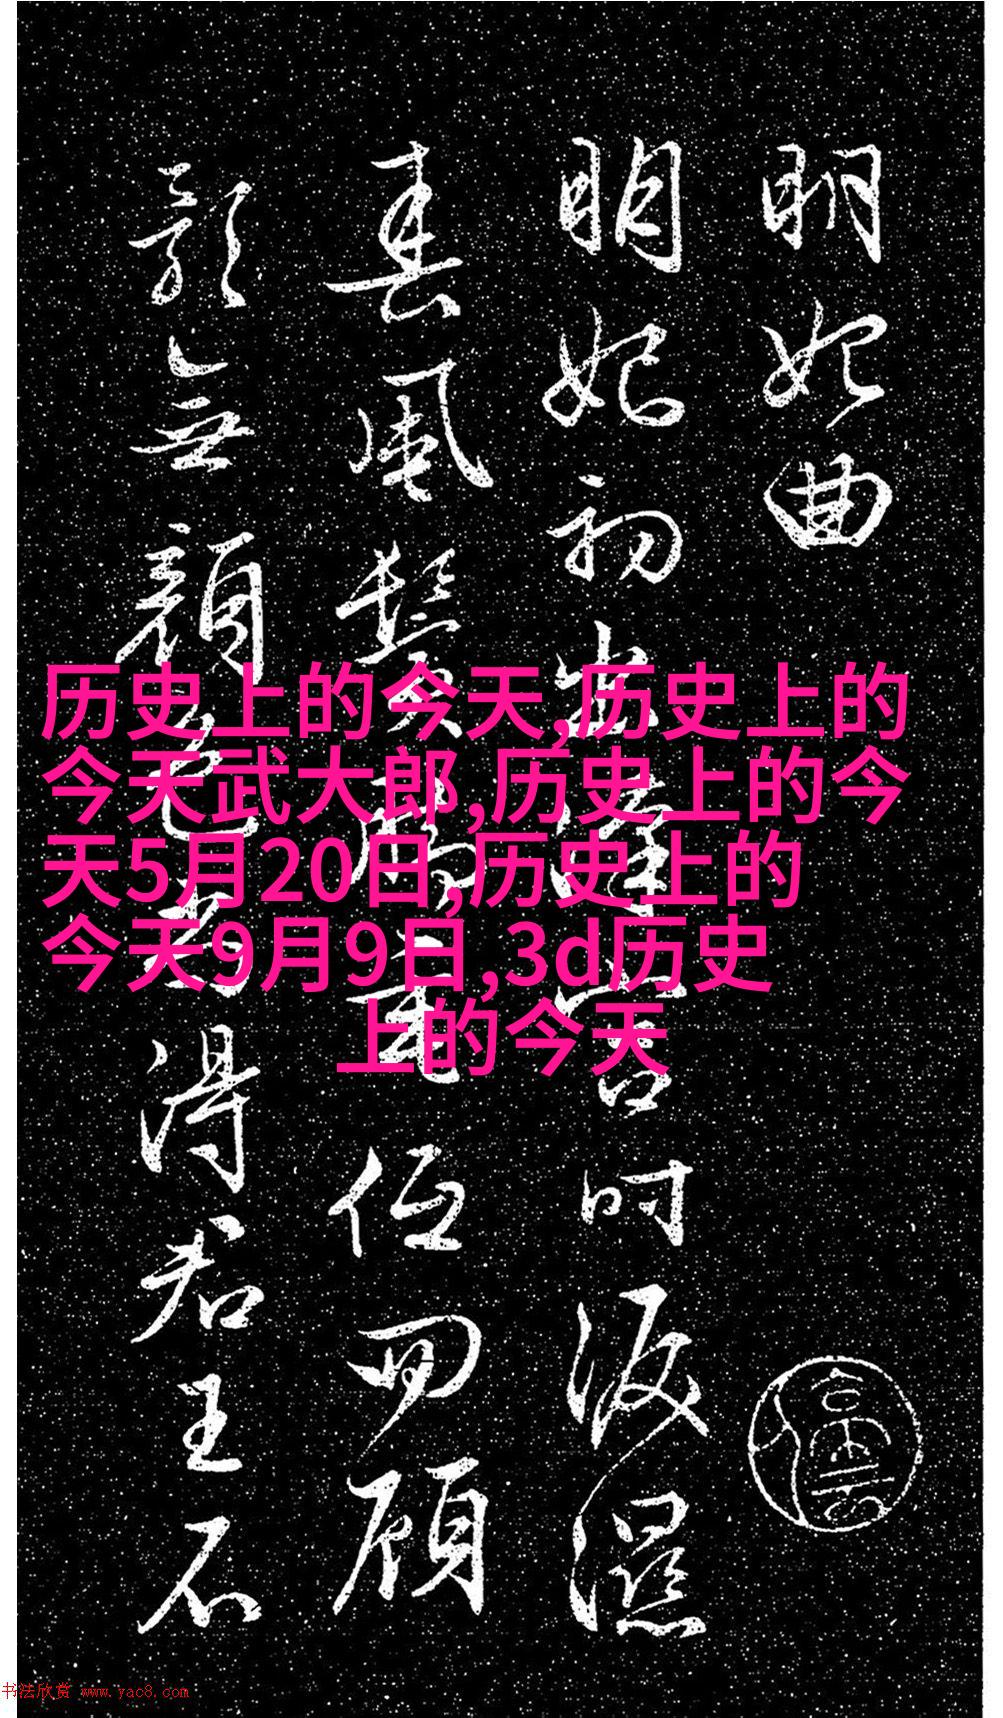 明妃曲
明妃初出漢宮時淚濕
春風鬢腳垂低回顧
影無顏色尚得君王不
历史上的今天,历史上的
今天武大郎,历史上的今
天5月20日,历史上的
今天9月9日,3d历史
上的今天
书法欣赏 www.yac8.com